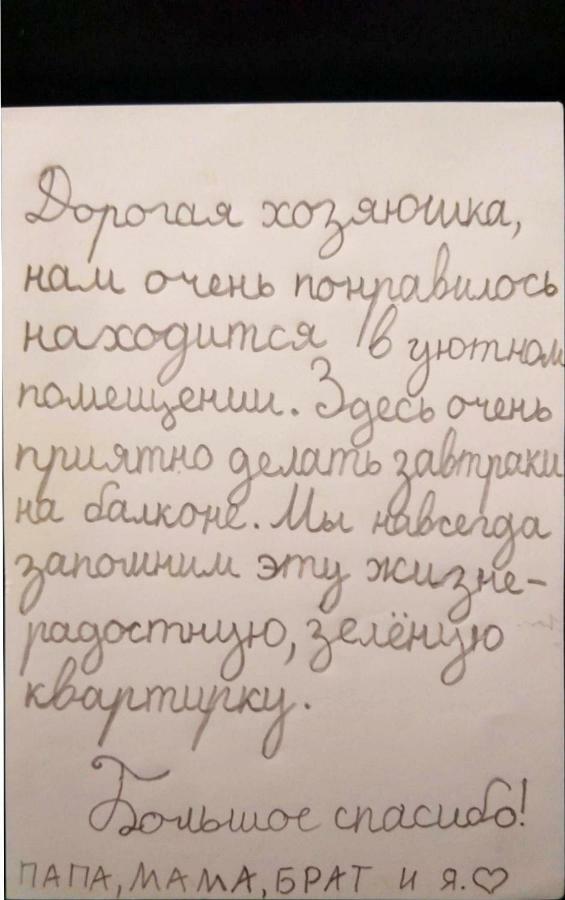 Дорогая хозяюшка,
нам очень понравилось
находится в уютном
помещении. Здесь очень
приятно делать завтраки
на балконе. Мы навсегда
запомним эту жизне-
радостную, зелёную
квартирку.
Большое спасибо!
ПАПА, МАМА, БРАТ И Я.♡